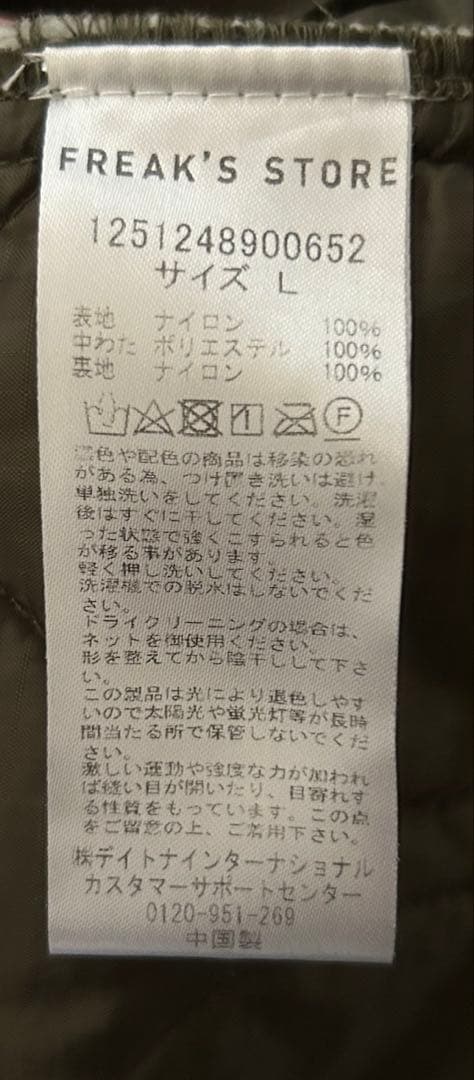 FREAK'S STORE
1251248900652
サイズ L
表地 ナイロン 100%
中わた ポリエステル 100%
裏地 ナイロン 100%
F
濃色や配色の商品は移染の恐れ
がある為、つけ置き洗いは避け
単独洗いをしてください。洗濯
後はすぐに干してください。湿
った状態で強くこすられると色
が移る事があります。
軽く押し洗いしてください。
洗濯機での脱水はしないでくだ
さい。
ドライクリーニングの場合は、
ネットを御使用ください。
形を整えてから陰干しして下さ
い。
この製品は光により退色しやす
いので太陽光や蛍光灯等が長時
間当たる所で保管しないでくだ
さい。
激しい運動や強度な力が加われ
ば縫い目が開いたり、目寄れす
る性質をもっています。この点
をご留意の上、ご着用下さい。
㈱デイトナインターナショナル
カスタマーサポートセンター
0120-951-269
中国製